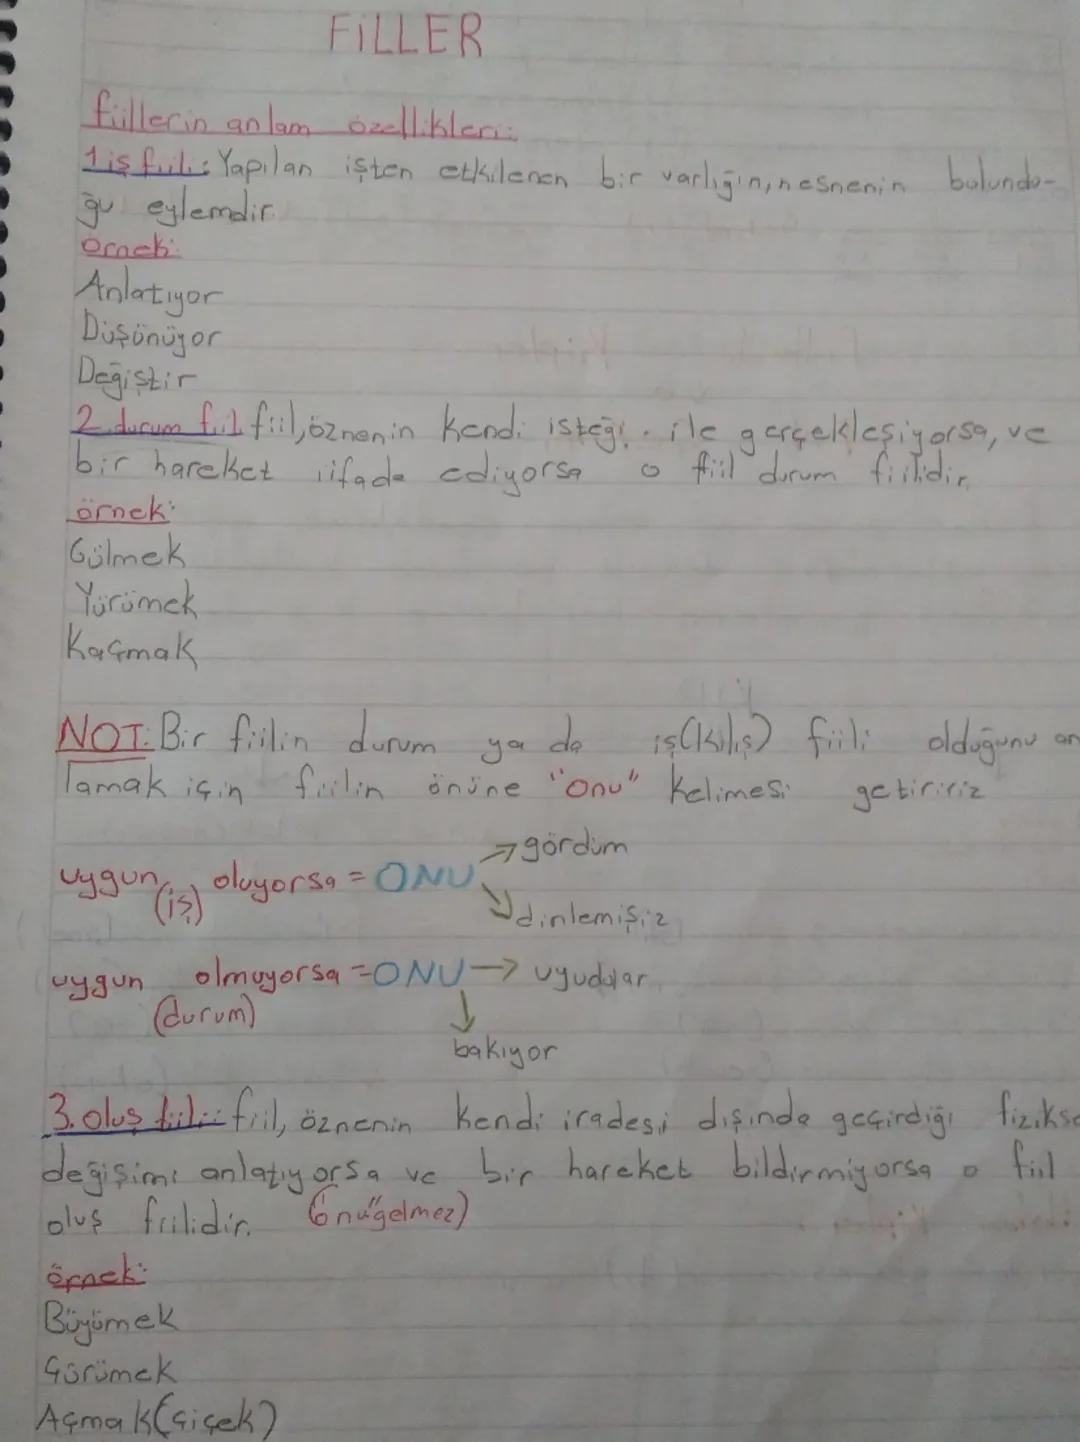 FiLLER
fiillerin anlam özellikleri:
1 iş fiili: Yapılan işten etkilenen bir varlığın, nesnenin bulundu-
ğu eylemdir.
örnek:
Anlatıyor
Düşünüyor
Değiştir
2 durum fiil fiil, öznenin kendi isteği ile gerçekleşiyorsa, ve
bir hareket iifade ediyorsa o fiil durum fiilidir.
örnek:
Gülmek
Yürümek
Kaçmak
NOT: Bir fiilin durum ya da iş(kılış) fiili olduğunu an
lamak için fiilin önüne "Onu" kelimesi getiririz
uygun oluyorsa = ONU → gördüm
(iş) dinlemişiz
uygun olmuyorsa = ONU → uyudular
(durum)
bakıyor
3. oluş fiili: fiil, öznenin kendi iradesi dışında geçirdiği fizikse
değişimi anlatıyorsa ve bir hareket bildirmiyorsa o fiil
oluş fiilidir. (Onu"gelmez)
örnek:
Büyümek
Çürümek
Açmak(çiçek)